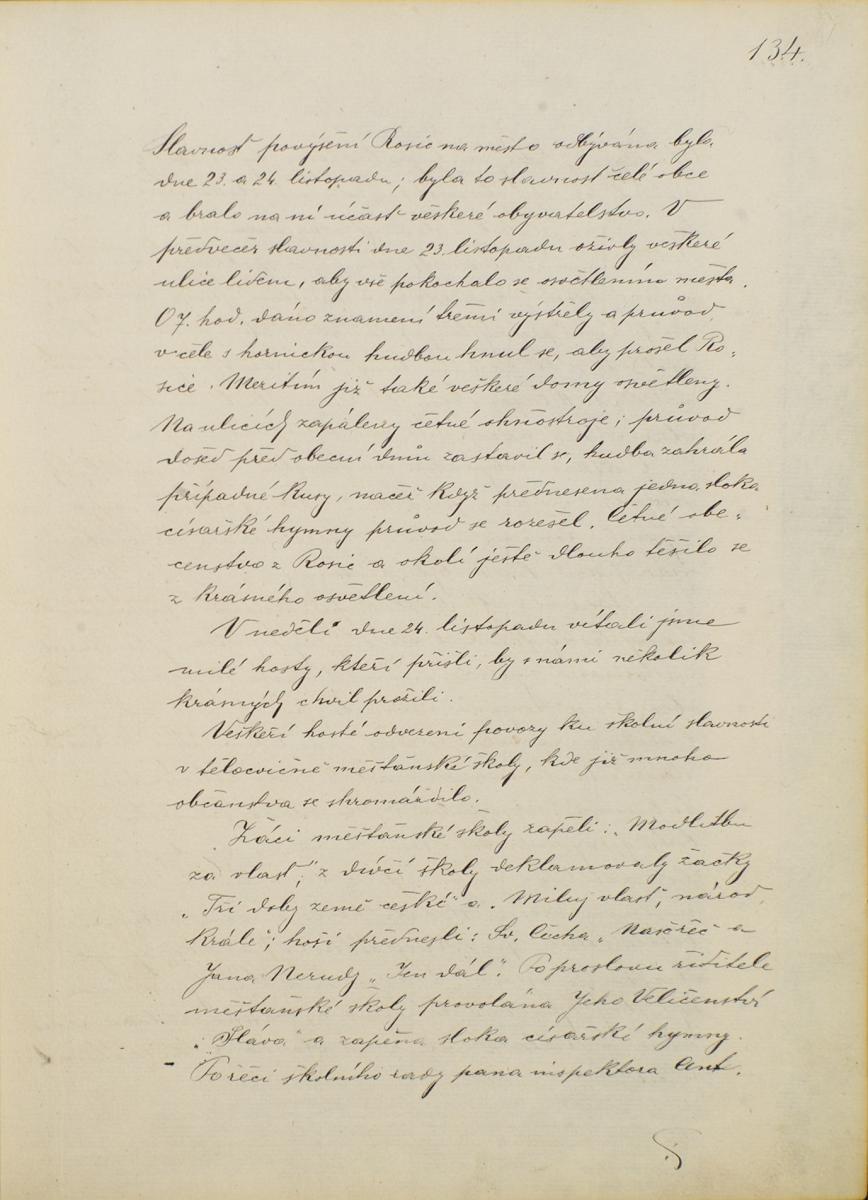 134.
Slavnosť povýšení Rosic na město odbývána byla
dne 23. a 24. listopadu; byla to slavnosť celé obce
a bralo na ní účasť veškeré obyvatelstvo. V
předvečer slavnosti dne 23. listopadu ožily veškeré
ulice lidem, aby vše pokochalo se osvětlením města.
O 7. hod. dáno znamení třemi výstřely a průvod
v čele s hornickou hudbou hnul se, aby prošel Ro-
sice. Mezitím již také veškeré domy osvětleny.
Na ulicích zapáleny četné ohňostroje; průvod
došed před obecní dům zastavil se, hudba zahrála
případné kusy, načež když přednesena jedna sloka
císařské hymny průvod se rozešel. Četné obe-
censtvo z Rosic a okolí ještě dlouho těšilo se
z krásného osvětlení.
V neděli dne 24. listopadu vítali jsme
milé hosty, kteří přišli, by s námi několik
krásných chvil prožili.
Veškeří hosté odvezeni povozy ku školní slavnosti
v tělocvičně měšťanské školy, kde již mnoho
občanstva se shromáždilo.
Žáci měšťanské školy zapěli: „Modlitbu
za vlasť," z dívčí školy deklamovaly žačky
„Tři doby země české" a „Miluj vlasť, národ,
krále"; hoši přednesli: Sv. Čecha „Naší řeč" a
Jana Nerudy „Jen dál". Po proslovu řiditele
měšťanské školy provolána Jeho Veličenství
„Sláva" a zapěna sloka císařské hymny.
Po řeči školního rady pana inspektora Ant.